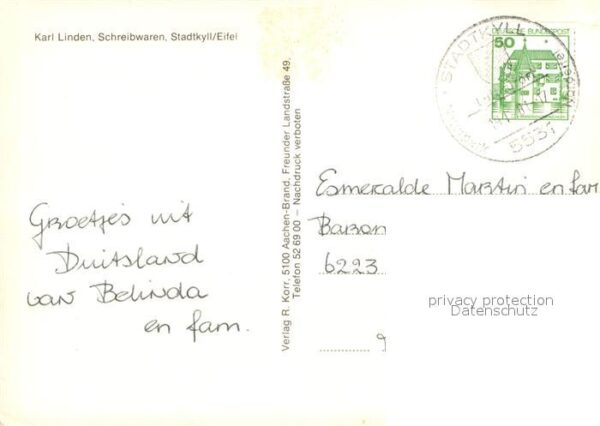 Karl Linden, Schreibwaren, Stadtkyll/Eifel
Groetjes uit
Duitsland
van Belinda
en fam.
Verlag R. Korr, 5100 Aachen-Brand, Freunder Landstraße 49,
Telefon 52 69 00 – Nachdruck verboten
DEUTSCHE BUNDESPOST
50
STADTKYLL
5537
Esmeralde Martin en fam
Baron
6223
privacy protection
Datenschutz